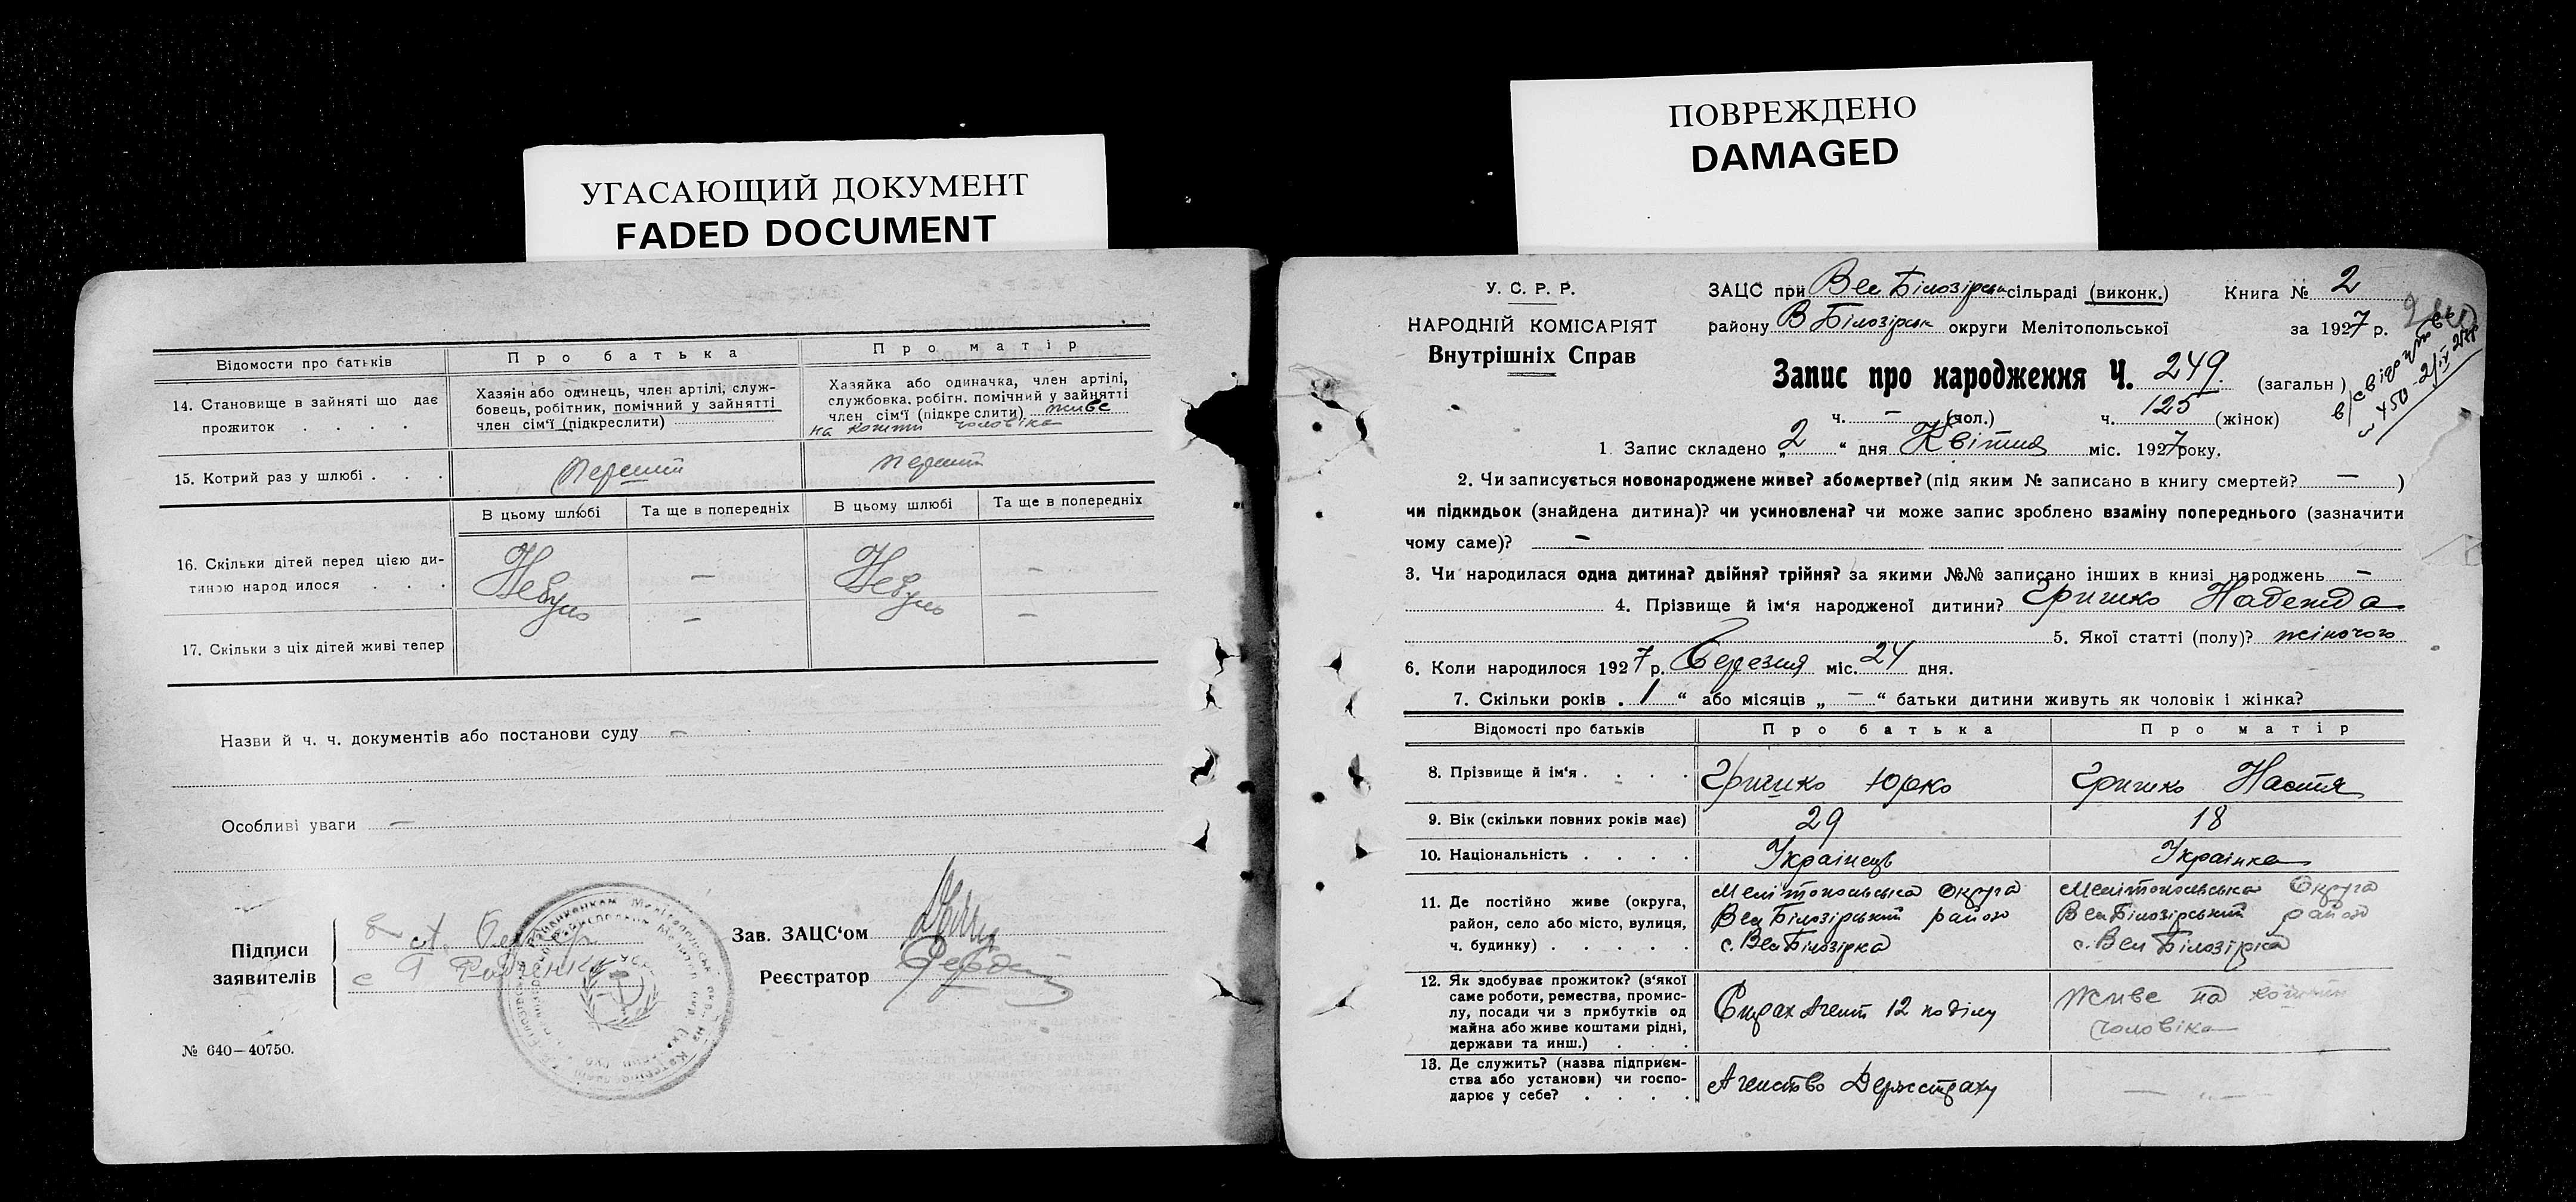 УГАСАЮЩИЙ ДОКУМЕНТ
FADED DOCUMENT
Відомости про батьків
Про батька
Про матір
14. Становище в зайняті що дає прожиток . . . .
Хазяін або одинець, член артілі, служ-
бовець, робітник, помічний у зайнятті
член сім'ї (підкреслити)
Хазяйка або одиначка, член артілі,
службовка. робітн. помічний у зайнятті
член сім'ї (підкреслити) живе
на кошти чоловіка
15. Котрий раз у шлюбі . . .
перший
перший
В цьому шлюбі
Та ще в попередніх
В цьому шлюбі
Та ще в попередніх
16. Скільки дітей перед цією ди-
тиною народилося . . .
Небуло
—
Небуло
—
17. Скільки з ціх дітей живі тепер
—
—
Назви й ч. ч. документів або постанови суду —
Особливі уваги —
Підписи
заявителів
Зав. ЗАЦС'ом
Реєстратор
№ 640—40750.
ПОВРЕЖДЕНО
DAMAGED
У. С. Р. Р.
НАРОДНІЙ КОМІСАРІЯТ
Внутрішніх Справ
ЗАЦС при Вел Білозірськ сільраді (виконк.) Книга № 2
району В Білозірськ округи Мелітопольської за 1927 р.
Запис про народження Ч. 249. (загальн)
ч. — (чол.) ч. 125 (жінок)
1. Запис складено „2“ дня Квітня міс. 1927 року.
2. Чи записується новонароджене живе? або мертве? (під яким № записано в книгу смертей? — )
чи підкидьок (знайдена дитина)? чи усиновлена? чи може запис зроблено взаміну попереднього (зазначити
чому саме)? —
3. Чи народилася одна дитина? двійня? трійня? за якими №№ записано інших в книзі народжень —
4. Прізвище й ім'я народженої дитини? Гришко Надежда
5. Якої статті (полу)? жіночого
6. Коли народилося 1927 р. Березня міс. 24 дня.
7. Скільки років . 1 “ або місяців „ — “ батьки дитини живуть як чоловік і жінка?
Відомості про батьків
Про батька
Про матір
8. Прізвище й ім'я . . . .
Гришко Юрко
Гришко Настя
9. Вік (скільки повних років має)
29
18
10. Національність . . . .
Украінець
Украінка
11. Де постійно живе (округа,
район, село або місто, вулиця,
ч. будинку) . . . . .
Мелітопольська Округа
Вел Білозірський район
с. Вел Білозірка
Мелітопольська Округа
Вел Білозірський район
с. Вел Білозірка
12. Як здобуває прожиток? (з'якої
саме роботи, ремества, промис-
лу, посади чи з прибутків од
майна або живе коштами рідні,
держави та инш.) . . .
Страх Агент 12 поділу
Живе на кошти
чоловіка
13. Де служить? (назва підприєм-
ства або установи) чи госпо-
дарює у себе? . . . .
Агенство Держстраху